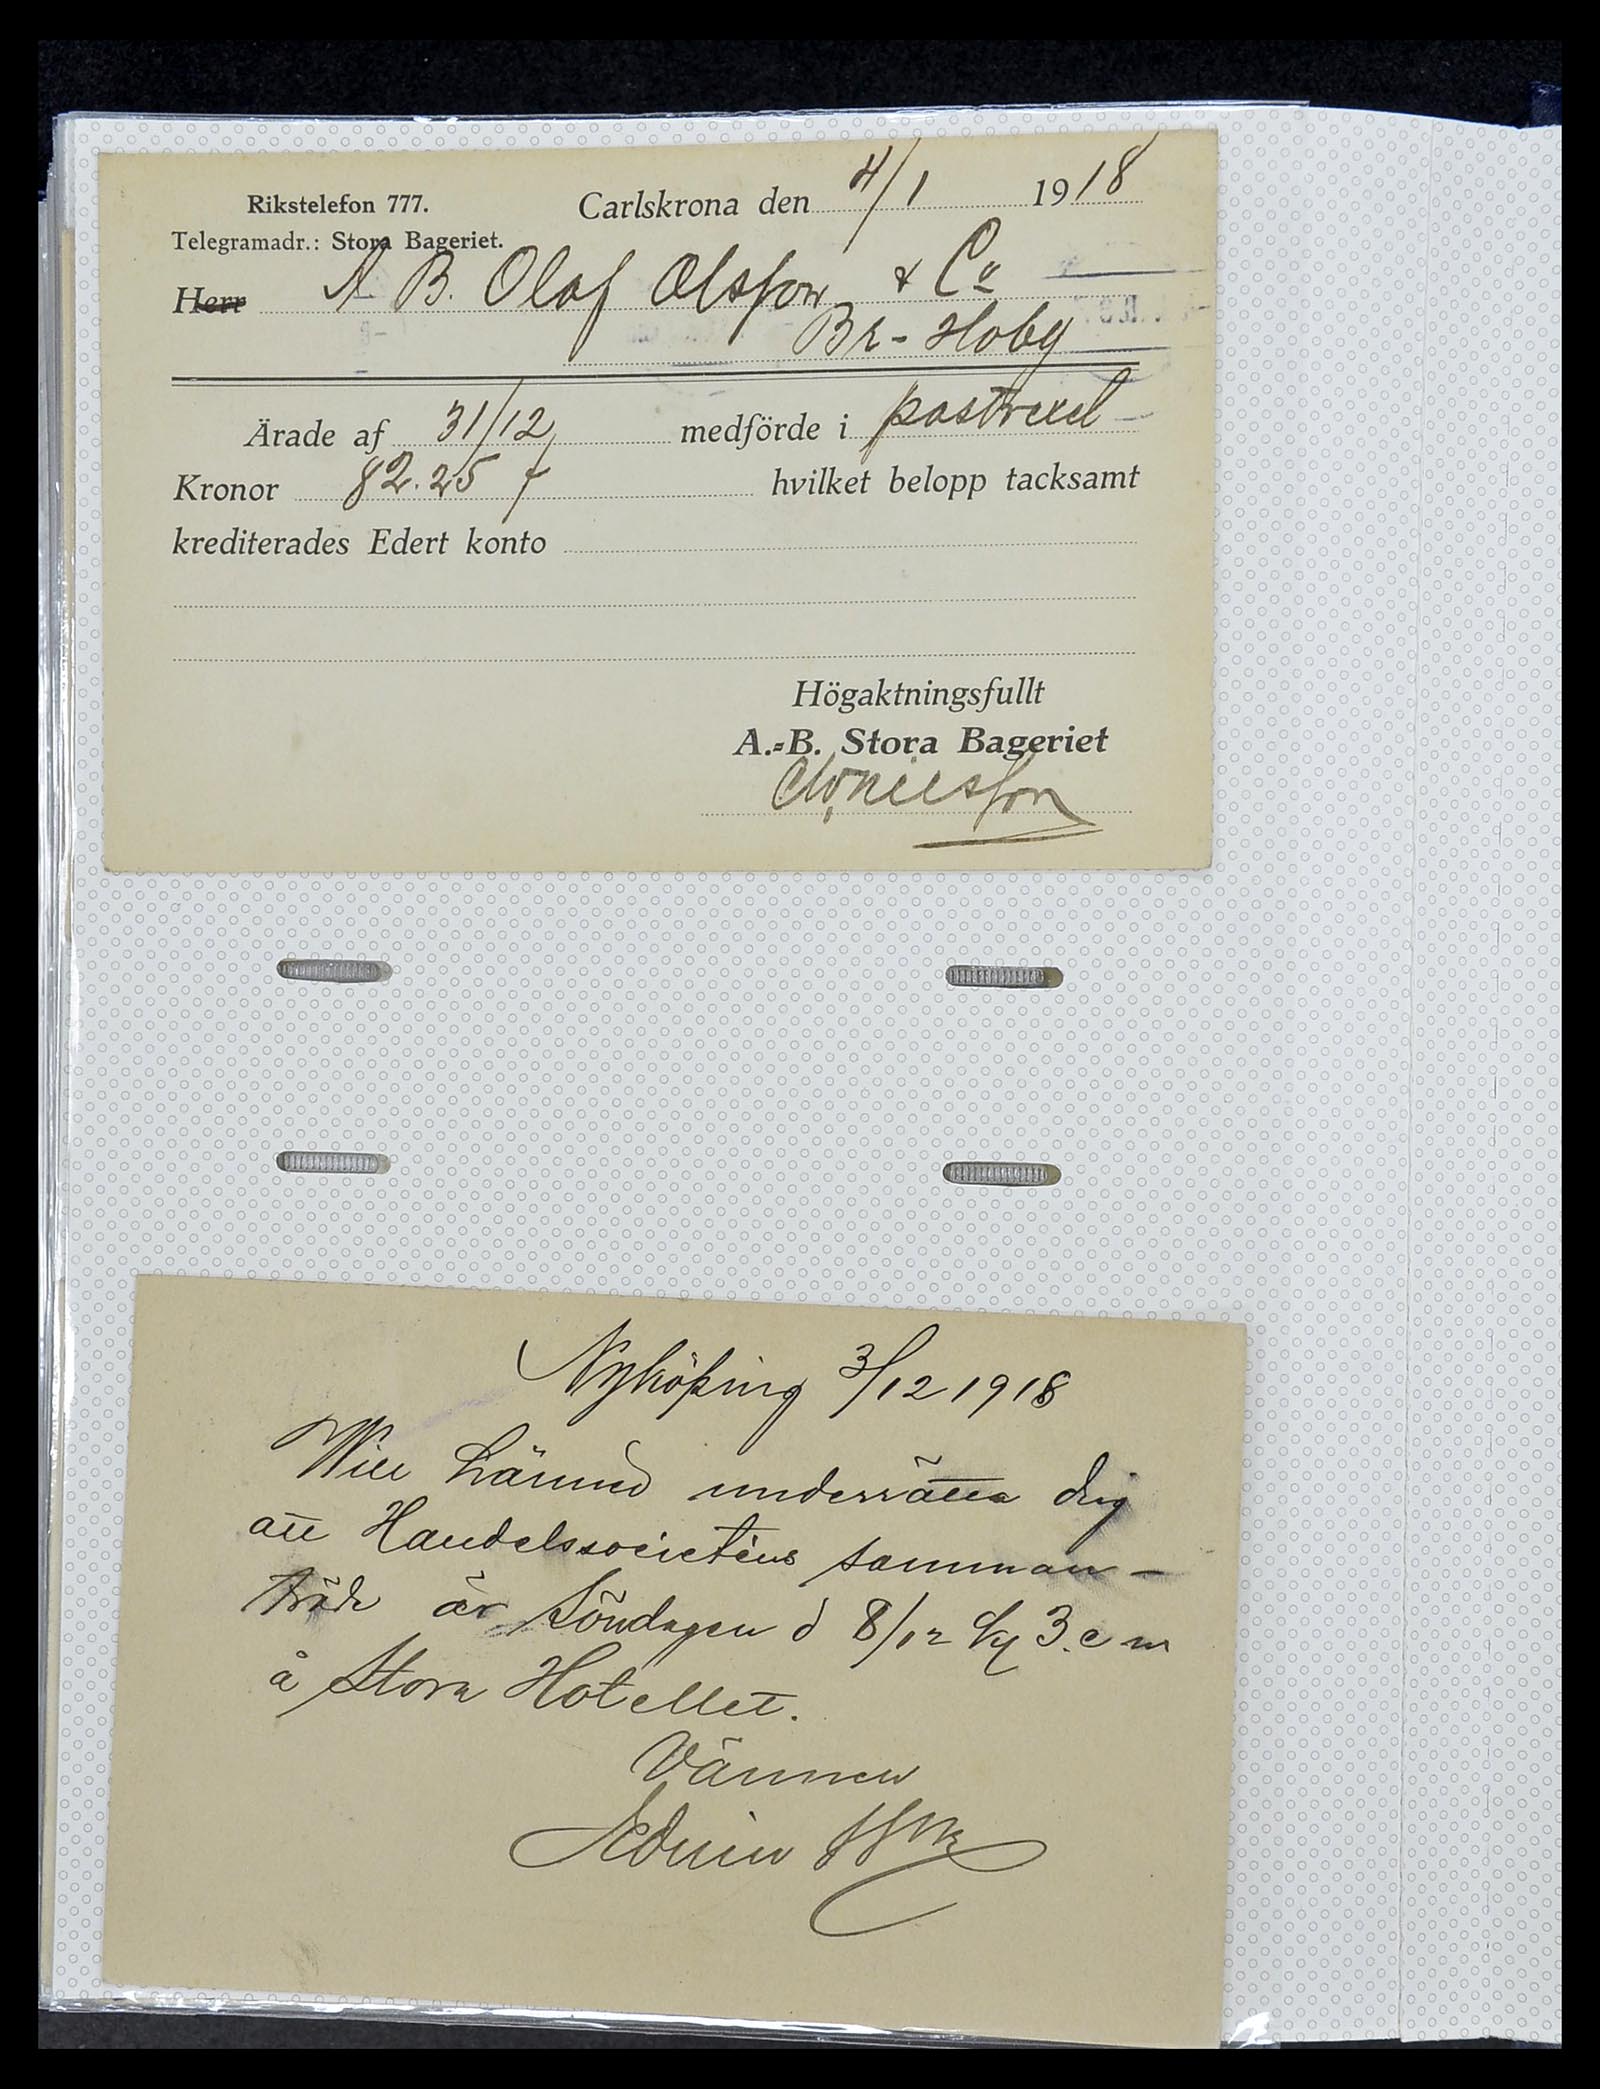 Rikstelefon 777.
Carlskrona den 4/1 1918
Telegramadr.: Stora Bageriet.
Herr A B. Olof Olsson & Co
Br-Hoby
Ärade af 31/12 medförde i postvexel
Kronor 82.25 hvilket belopp tacksamt
krediterades Edert konto
Högaktningsfullt
A.-B. Stora Bageriet
Nilsson
Nyköping 3/12 1918
Vill härmed underrätta dig
att Handelssocietens samman-
träde är Söndagen d 8/12 kl 3. e m
å Stora Hotellet.
Vännen
Edvin